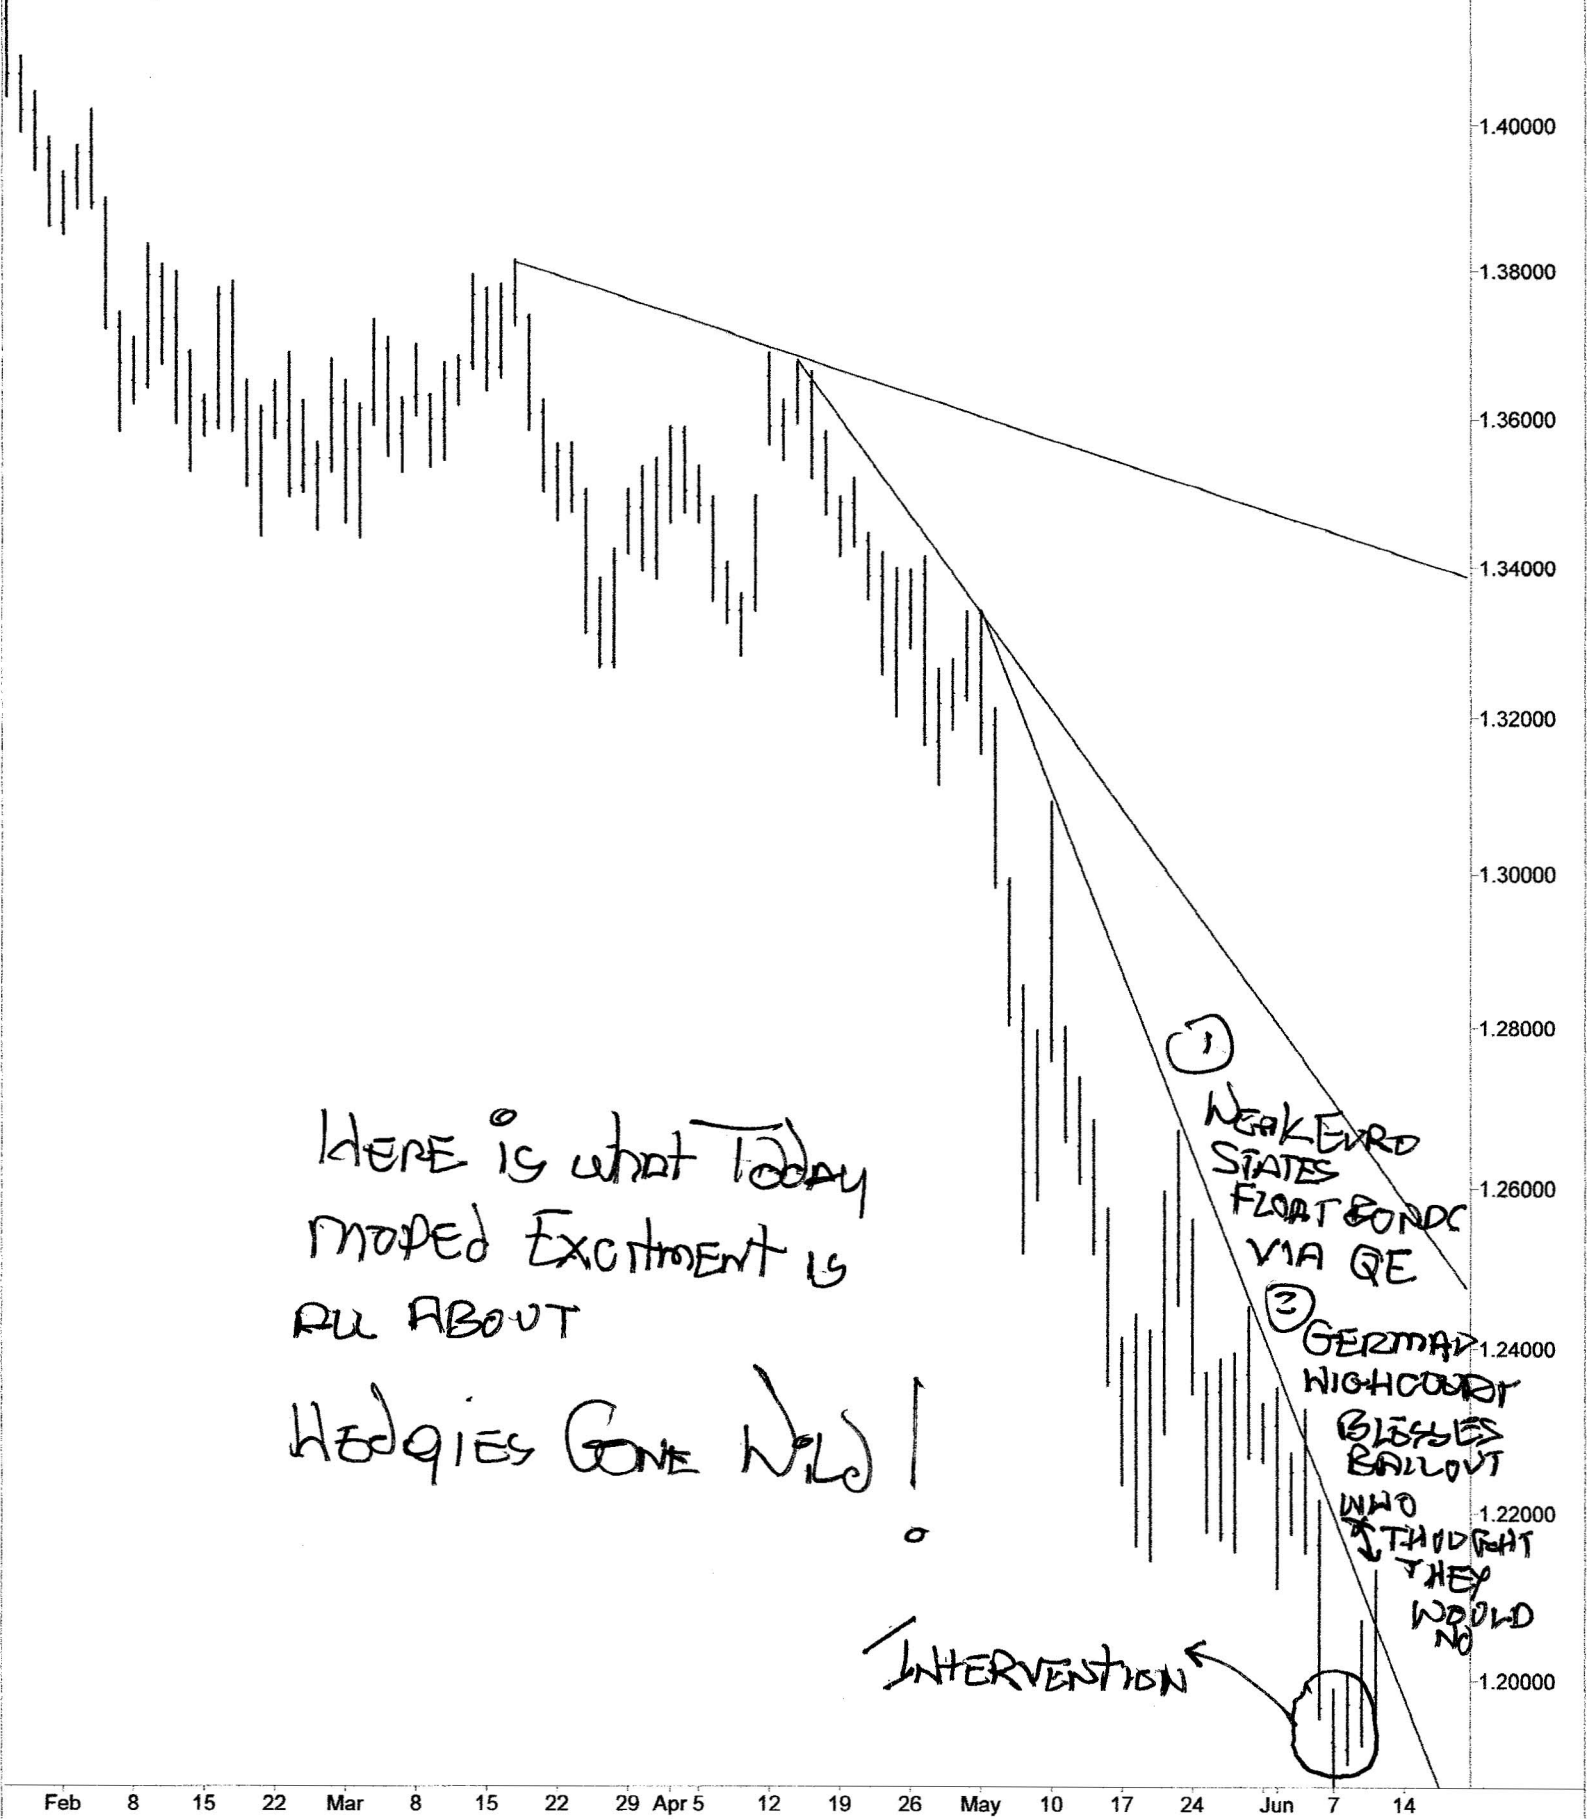 1.40000
1.38000
1.36000
1.34000
1.32000
1.30000
1.28000
1.26000
1.24000
1.22000
1.20000
HERE is what Today
MOPEd ExcitmENT is
All ABOUT
HEdgiES GONE Wild!
1
WEAK EURO
STATES
FLOAT BONDS
VIA QE
2
GERMAN
HIGH COURT
BLESSES
BAILOUT
WHO
THOUGHT
THEY
WOULD
NO
INTERVENTION
Feb 8 15 22 Mar 8 15 22 29 Apr 5 12 19 26 May 10 17 24 Jun 7 14